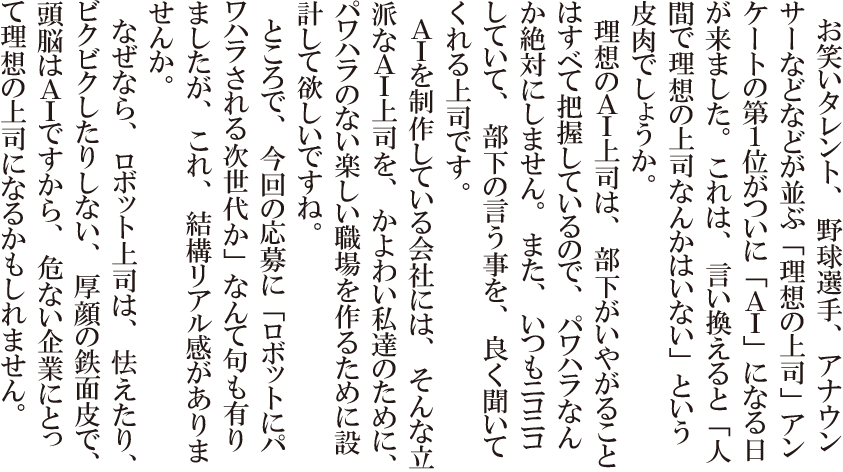 お笑いタレント、野球選手、アナウン
サーなどなどが並ぶ「理想の上司」アン
ケートの第1位がついに「AI」になる日
が来ました。これは、言い換えると「人
間で理想の上司なんかはいない」という
皮肉でしょうか。
　理想のAI上司は、部下がいやがること
はすべて把握しているので、パワハラなん
か絶対にしません。また、いつもニコニコ
していて、部下の言う事を、良く聞いて
くれる上司です。
　AIを制作している会社には、そんな立
派なAI上司を、かよわい私達のために、
パワハラのない楽しい職場を作るために設
計して欲しいですね。
　ところで、今回の応募に「ロボットにパ
ワハラされる次世代か」なんて句も有り
ましたが、これ、結構リアル感がありま
せんか。
　なぜなら、ロボット上司は、怯えたり、
ビクビクしたりしない、厚顔の鉄面皮で、
頭脳はAIですから、危ない企業にとっ
て理想の上司になるかもしれません。